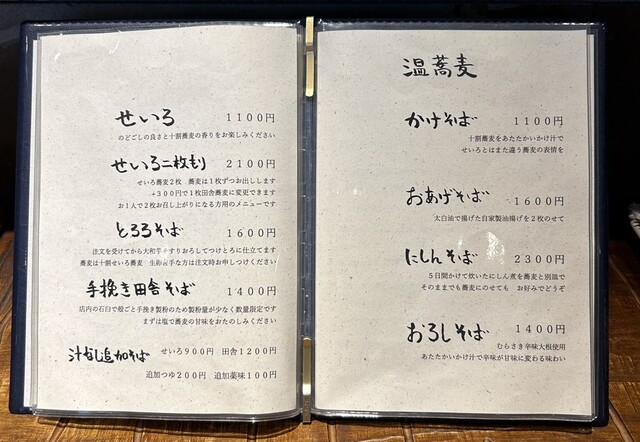 せいろ 1100円
のどごしの良さと十割蕎麦の香りをお楽しみください
せいろ二枚もり 2100円
せいろ蕎麦2枚 蕎麦は1枚ずつお出しします
+300円で1枚田舎蕎麦に変更できます
お1人で2枚お召し上がりになる方用のメニューです
とろろそば 1600円
注文を受けてから大和芋をすりおろしてつけとろに仕立てます
蕎麦は十割せいろ蕎麦 生卵苦手な方は注文時お申しつけください
手挽き田舎そば 1400円
店内の石臼で殻ごと手挽き製粉のため製粉量が少なく数量限定です
まずは塩で蕎麦の甘味をおたのしみください
汁なし追加そば せいろ900円 田舎1200円
追加つゆ200円 追加薬味100円
温蕎麦
かけそば 1100円
十割蕎麦をあたたかいかけ汁で
せいろとはまた違う蕎麦の表情を
おあげそば 1600円
太白油で揚げた自家製油揚げを2枚のせて
にしんそば 2300円
5日間かけて炊いたにしん煮を蕎麦と別皿で
そのままでも蕎麦にのせても お好みでどうぞ
おろしそば 1400円
むらさき辛味大根使用
あたたかいかけ汁で辛味が甘味に変わる味わい